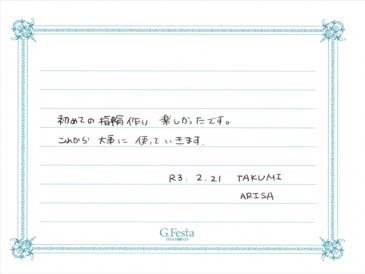 初めての指輪作り 楽しかったです。
これから 大事に 使っていきます.
R3. 2. 21 TAKUMI
ARISA
G.Festa
DIAMOND